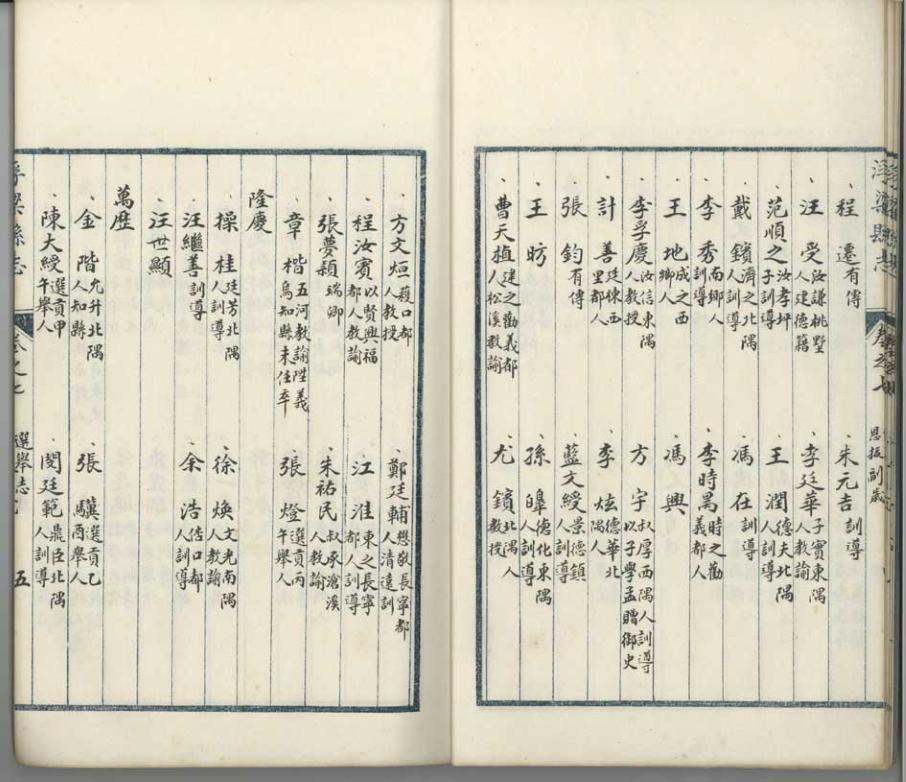 浮梁縣志 卷之七 恩拔副歲
程遷 有傳
朱元吉 訓導
汪受 汝謙桃墅人建德籍
李廷華 子實東隅人教諭
范順之 汝孝坪子訓導
王潤 德夫北隅人訓導
戴鑌 濟之北隅人訓導
馮在 訓導
李秀 南鄉人訓導
李時暠 時之勸義都人
王地 成之西鄉人
馮興
李孚慶 汝信東隅人教授
方宇 叔厚西隅人訓導以子學孟贈御史
計善 廷棟西里都人
李炫 德華北隅人
張鈞 有傳
藍文綬 景德鎮人訓導
王昉
孫皞 德化東隅人訓導
曹天植 建之勸義都人松溪教諭
尤鑌 北隅人教授
方文烜 葭口都人教授
鄭廷輔 懋敬長寧都人清遠訓
程汝賓 以賢興福都人教諭
江淮 東之長寧都人訓導
張夢穎 瑞卿
朱祐民 叔承滄溪人教諭
章楷 五河教諭陞義烏知縣未任卒
張燈 選貢丙午舉人
隆慶
操桂 廷芳北隅人訓導
徐煥 文光南隅人教諭
汪繼善 訓導
余浩 佸口都人訓導
汪世顯
萬歷
金階 允升北隅人知縣
張驥 選貢乙酉舉人
陳大綬 選貢甲午舉人
閔廷範 鼎臣北隅人訓導
浮梁縣志 卷之七 選舉志 五